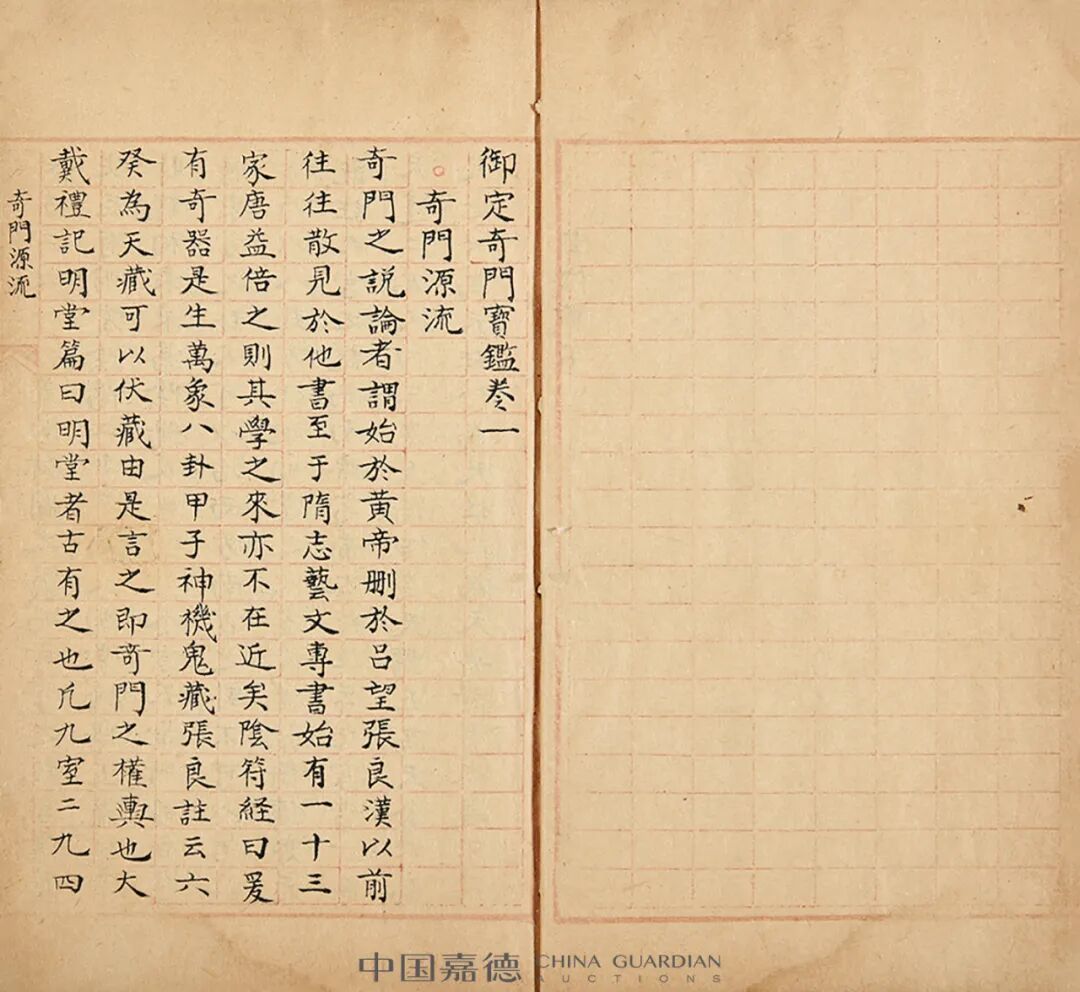 御定奇門寳鑑卷一
奇門源流
奇門之説論者謂始於黄帝删於吕望張良漢以前
往往散見於他書至于隋志藝文專書始有一十三
家唐益倍之則其學之來亦不在近矣陰符経曰爰
有奇器是生萬象八卦甲子神機鬼藏張良註云六
癸為天藏可以伏藏由是言之即奇門之權輿也大
戴禮記明堂篇曰明堂者古有之也凡九室二九四
奇門源流
中国嘉德 CHINA GUARDIAN
AUCTIONS